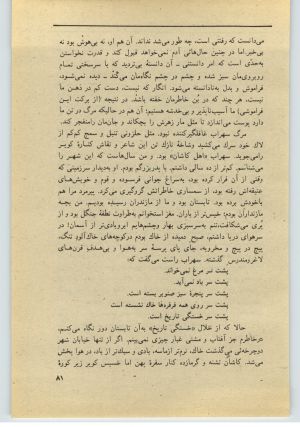 می‌دانست که رفتنی است، چه طور می‌شد نداند. آن هم او، نه بی‌هوش بود نه
بی‌خبر. اما در چنین حال‌هائی آدم نمی‌خواهد قبول کند و قدرت نخواستن
به‌حدی است که امر دانستنی - آن دانستهٔ بی‌تردید که با سرسختی تمام
روبروی‌مان سبز شده و چشم در چشم نگاه‌مان می‌کند - دیده نمی‌شود،
فراموش و بدل به‌نادانسته می‌شود. انگار که نیست، دست کم در ذهن ما
نیست، هر چند که در بُن خاطرمان خفته باشد. در نتیجه (از برکت این
فراموشی) ما آسیب‌ناپذیر و بی‌خدشه هستیم؛ آن هم در حالیکه مرگ در تن ما
دارد پوست می‌اندازد تا مثل مار زهرش را بچکاند و جان‌مان را منفجر کند.
مرگ سهراب غافلگیرکننده نبود. مثل حلزونی تنبل و سمج کم‌کم از
لاک خود سرک می‌کشید و شاخهٔ نازک تن این شاعر و نقاش کنارهٔ کویر
را می‌جوید. سهراب «اهل کاشان» بود. و من سال‌هاست که این شهر را
می‌شناسم. کم‌تر از ده سالی داشتم. با پدربزرگم بودم. او به‌دیدار سرزمینی که
وقتی از آن فرار کرده بود، به‌سراغ جوانی فرسوده و قوم و خویش‌های
عتیقه‌اش رفته بود، از سمساری خاطراتش گردگیری می‌کرد. پیرمرد مرا هم
باخودش برده بود. تابستان بود و ما از مازندران رسیده بودیم. من بچه
مازندران بودم؛ خیس‌تر از باران. مغز استخوانم به‌طراوت نطفهٔ جنگل بود و از
پُری می‌شکافت، تنم به‌سرسبزی بهار و چشم‌هایم ابروبادی‌تر از آسمان! در
سرهوای دریا داشتم. صبح دمیده از خاک بودم در کوچه‌های خاک‌آلود تنگ،
در پیچ پیچ و مخروبه، جای پای پرسهٔ سر به‌هوا و بی‌هدف قرن‌های
لاغر و مندرس گذشته. سهراب راست می‌گفت که:
پشت سر مرغ نمی‌خواند.
پشت سر باد نمی‌آید.
پشت سر پنجرهٔ سبز صنوبر بسته است.
پشت سر روی همه فرفره‌ها خاک نشسته است
پشت سر خستگی تاریخ است.
حالا که از خلال «خستگی تاریخ» به‌آن تابستان دور نگاه می‌کنیم،
درخاطرم جز آفتاب و مشتی غبار چیزی نمی‌بینم. اگر از تنها خیابان شهر
دوچرخه‌ئی می‌گذشت خاک، نرم‌تر از ماسه، بادی و سبک‌تر از باد، در هوا پخش
می‌شد. کاشان تشنه و گرمازده کنار سفرهٔ پهن اما خسیس کویر زیر کورهٔ
۸۱